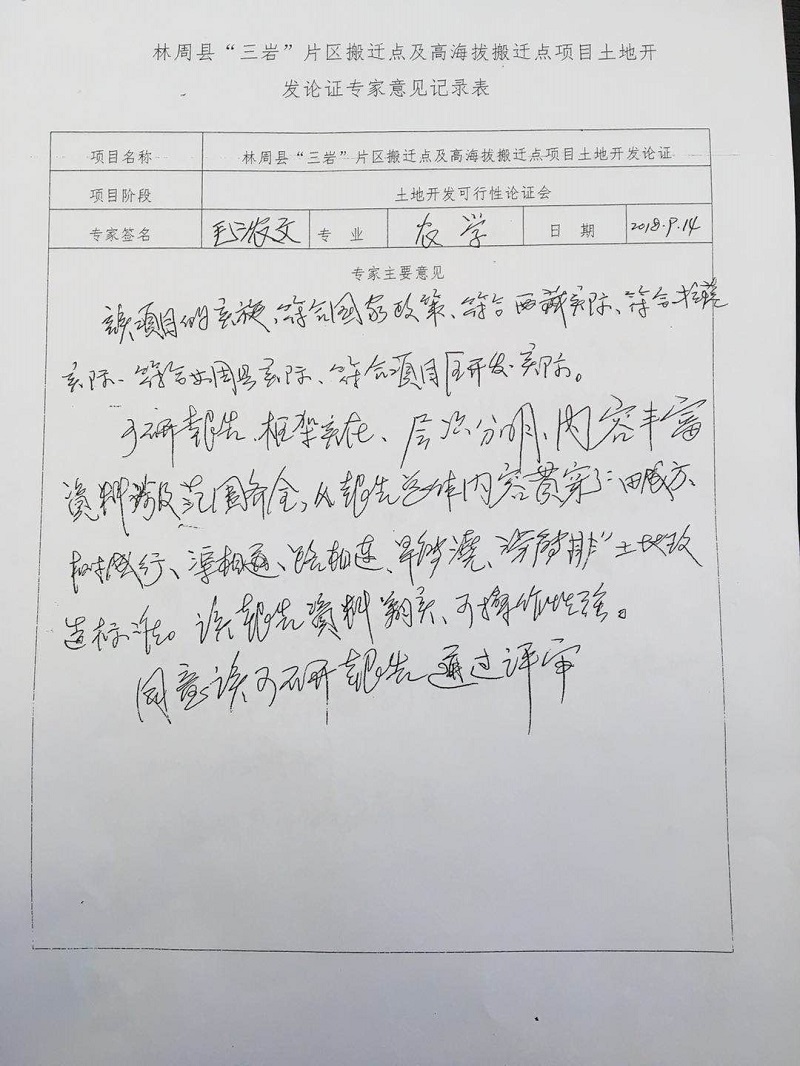 林周县“三岩”片区搬迁点及高海拔搬迁点项目土地开
发论证专家意见记录表
项目名称 林周县“三岩”片区搬迁点及高海拔搬迁点项目土地开发论证
项目阶段 土地开发可行性论证会
专家签名 专业 农学 日期 2018.9.14
专家主要意见
该项目的实施、符合国家政策、符合西藏实际、符合
实际、符合林周县实际、符合项目区开发实际。
可研报告、框架实在、层次分明、内容丰富
资料涉及范围齐全，从报告总体内容贯穿了“田成方、
树成行、渠相通、路相连、旱能浇、涝能排”土地改
造标准。该报告资料翔实、可操作性强。
同意该可研报告通过评审